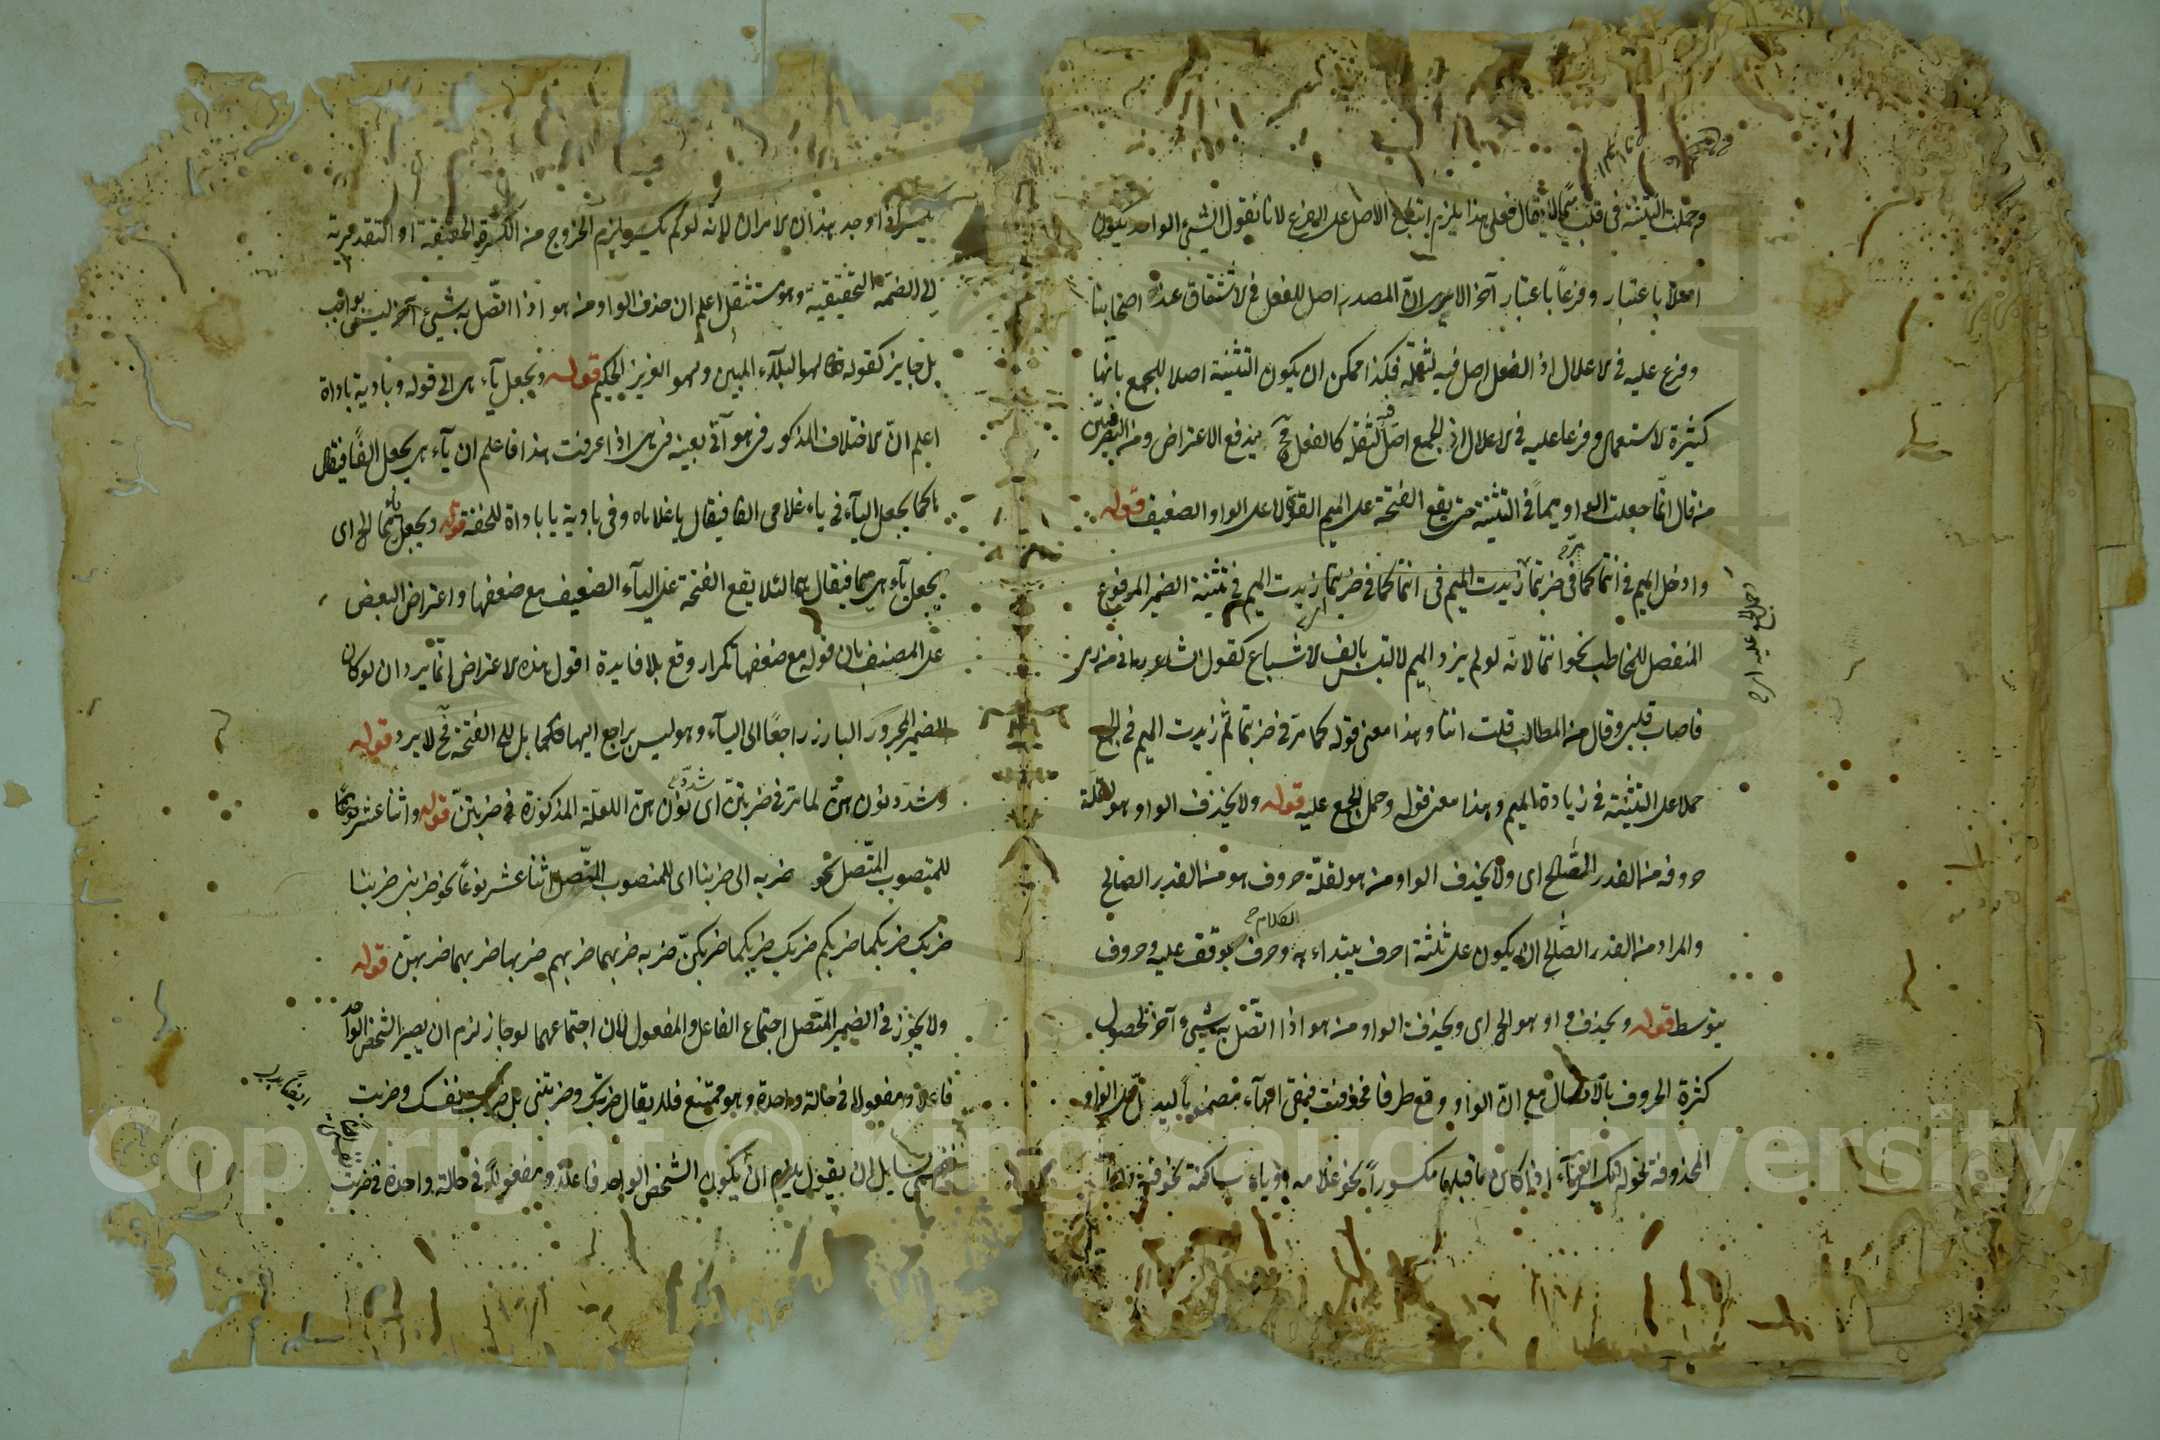 وحملت التثنية في قلب لا يقال فعلى هذا يلزم اتباع الاصل على الفرع لانا نقول الشيء الواحد يكون
اصلا باعتبار وفرعاً باعتبار آخر الا يرى ان المصدر اصل للفعل في الاشتقاق عند اصحابنا
وفرع عليه في الاعلال اذ الفعل اصل فيه لثقله فكذا ممكن ان يكون التثنية اصلا للجمع بانها
كثيرة الاستعمال وفرعا عليه في الاعلال اذ الجمع اصل لثقله كالفعل فح يندفع الاعتراض ومن
من قال انما جعلت الواو ميماً في التثنية حتى يقع الفتحة على الميم القوي لا على الواو الضعيف قوله
وادخل الميم في انتما كما في ضربتما زيدت الميم في انتما كما في ضربتما زيدت الميم في تثنية الضمير المرفوع
المنفصل للمخاطب نحو انتما لانه لو لم يزد الميم لالتبس بالف الاشباع كقول الشاعر
فاصاب قلبي وقال من المطالب قلت انتا وهذا معنى قوله كما مر في ضربتما ثم زيدت الميم في الجمع
حملا على التثنية في زيادة الميم وهذا معنى قوله وحمل الجمع عليه قوله ولا يحذف الواو هو لقلة
حروفه من القدر الصالح اى ولا يحذف الواو من هو لقلة حروف هو من القدر الصالح
والمراد من القدر الصالح ان يكون على ثلثة احرف يبتداء به وحرف يوقف عليه وحروف
يتوسط قوله ويحذف واو هو الخ اى ويحذف الواو من هو اذا اتصل بشيء آخر لحصول
كثرة الحروف بالاتصال مع ان الواو وقع طرفا فحذفت فبقى الهاء مضموماً ليدل على الواو
المحذوفة نحو له اذا كان ما قبلها مكسوراً نحو غلامه او ياء ساكنة نحو فيه
لانه لو لم يكسر يلزم الخروج من الكسرة الحقيقية او التقديرية
الى الضمة التحقيقية وهو مستثقل اعلم ان حذف الواو من هو اذا اتصل به شيء آخر ليس بواجب
بل جايز كقوله لهو البلاء المبين ولهو العزيز الحكيم قوله ويجعل ياء هى الى قوله وبادية باداة
اعلم ان الاختلاف المذكور في هو آتي بعينه في هى اذا عرفت هذا فاعلم ان ياء هى يجعل الفاً فيقال
ها كما يجعل الياء في ياء غلامى الفا فيقال يا غلاماه وفى بادية يا باداة للخفة قوله ويجعل ميما الخ اى
يجعل ياء هى ميما فيقال هما لئلا يقع الفتحة على الياء الضعيف مع ضعفها واعتراض البعض
على المصنف بان قوله مع ضعفها تكرار وقع بلا فايدة اقول هذه الاعتراض انما يرد ان لو كان
الضمير المجرور البارز راجعاً الى الياء وهو ليس براجع اليها بل الى الفتحة فح لا يرد قوله
وشدد نون هن لما مر في ضربتن اى شدد نون هن للعلة المذكورة في ضربتن قوله واثنا عشر نوعاً
للمنصوب المتصل نحو ضربه الى ضربنا اى للمنصوب المتصل اثنا عشر نوعاً نحو ضربنى ضربنا
ضربك ضربكما ضربكم ضربك ضربكما ضربكن ضربه ضربهما ضربهم ضربها ضربهما ضربهن قوله
ولا يجوز في الضمير المتصل اجتماع الفاعل والمفعول لان اجتماعهما لو جاز لزم ان يصير الشخص الواحد
فاعلا ومفعولا في حالة واحدة وهو ممتنع فلا يقال ضربتك وضربتنى بل ضربت نفسك وضربت
نفسى سايل ان يقول يلزم ان يكون الشخص الواحد فاعلا ومفعولا في حالة واحدة في ضربت
Copyright © King Saud University